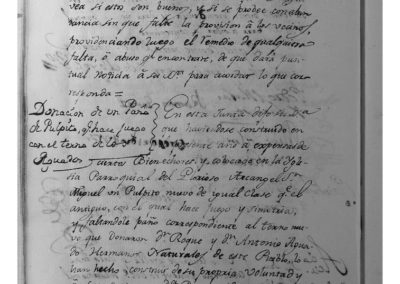 vea si estos son buenos, y si se produce constan-
rancia sin que falte la provision à los vecinos,
providenciando luego el remedio de qualquiera
falta, ó abuso q.e encontrare, de que dará pun-
tual noticia à su M.d para acordar lo que cor-
responda =
Donacion de un Paño
de Pulpito, q.e hace juego
con el terno de los
Aguados
En esta Junta
que haviendose construido en
el presente año à expensas de
varios Bienechores y colocado en la Ygle-
sia Parroquial del Glorioso Arcangel S.n
Miguel un Pulpito nuevo de igual clase q.e el
antiguo, con el qual hace juego y simetria,
y faltandole paño correspondiente al terno nue-
vo que donaron D.n Roque y D.n Antonio Agua-
do Hermanos Naturales de este Pueblo, lo
han hecho construir de su propria voluntad y